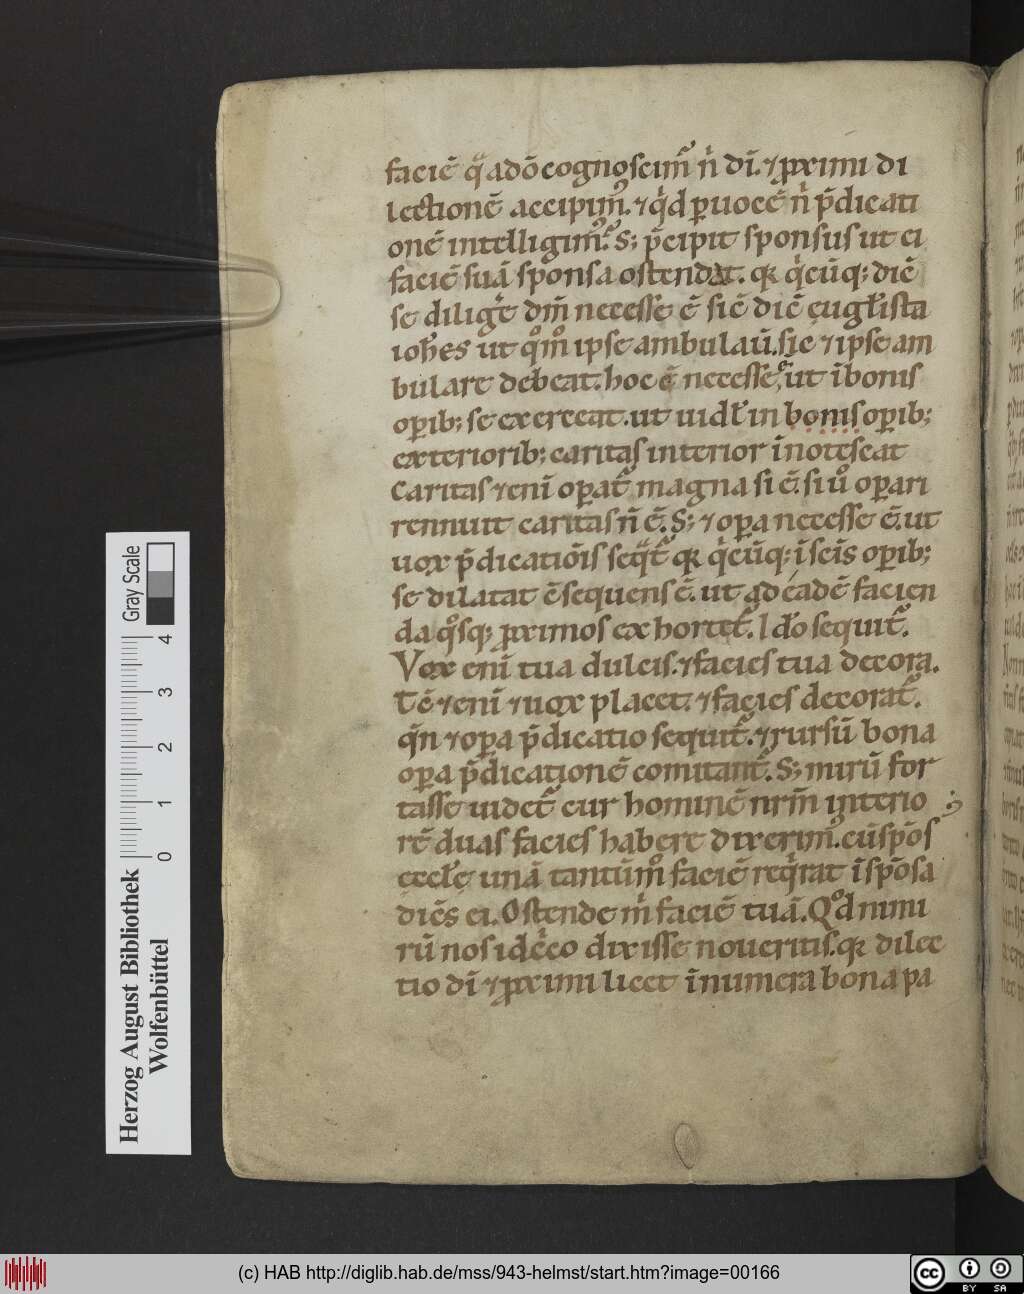 faciē qͣ a dō cognoscim᷒ nͥ dī. ⁊ ꝓximi di
lectionē accipim᷒. ⁊ qͥd ꝑ uocē nͥ p̄dicati
onē intelligim᷒. S; p̄cipit sponsus ut ei
faciē suā sponsa ostendat. qꝛ qͥcūq; diē
se diligͤe dm̄ necesse ē siē diē euglͥista
ioh̄es ut qͦmͦ ipse ambulau. sic ⁊ ipse am
bulare debeat. hoc ē necesse, ut ī bonis
oꝑib; se exerceat. ut uidlꝫ in bonis oꝑib;
exteriorib; caritas interior īnotescat
Caritas ⁊enī oꝑat᷒ magna si ē. si uͦ oꝑari
rennuit caritas n̄ ē. S; ⁊ oꝑa necesse ē. ut
uox p̄dicatiōis seqͣt᷒ qꝛ qͥcūq; ī scīs oꝑib;
se dilatat c̄sequens ē. ut ad eadē facien
da qͦsq; ꝓximos exhortet᷒. Idō sequit᷒.
Vox enī tua dulcis. ⁊ facies tua decora.
Tē ⁊enī ⁊ uox placet. ⁊ facies decorat᷒.
qn̄ ⁊ oꝑa p̄dicatio sequit᷒. ⁊ rursū bona
oꝑa p̄dicationē comitant᷒. S; mirū for
tasse uidet᷒ cur hominē nrm̄ interio
rē duas facies habere dixerim᷒. cū spōs
eccl̄e unā tantūmͦ faciē reqͥrat ī spōsa
diēs ei. Ostende mͥ faciē tuā. Qͦd nimi
rū nos idͥcco dixisse noueritis. qꝛ dilec
tio dī ⁊ ꝓximi licet īnumera bona pa
Herzog August Bibliothek
Wolfenbüttel
0 1 2 3 4
Gray Scale
(c) HAB http://diglib.hab.de/mss/943-helmst/start.htm?image=00166
cc BY SA